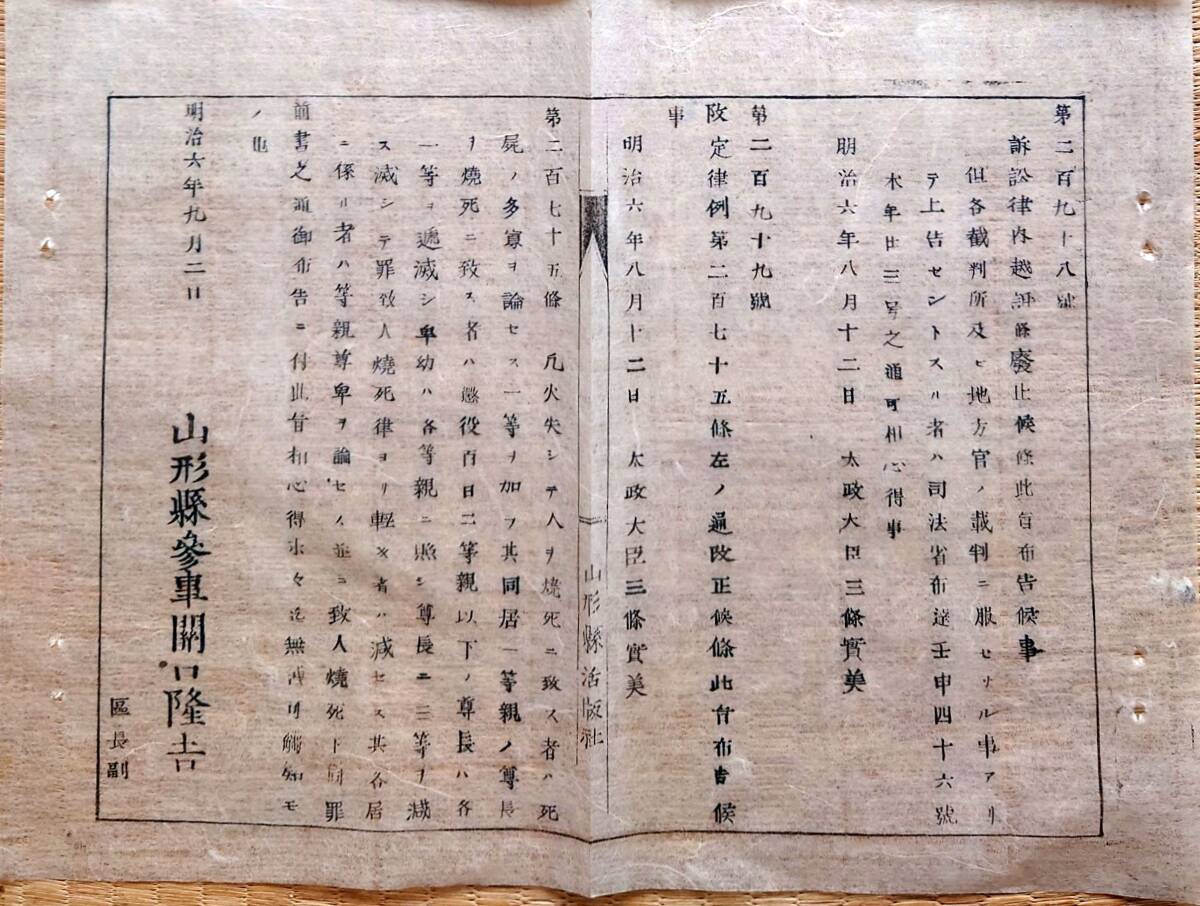 第二百九十八號
訴訟律內越訴條廢止候條此旨布告候事
但各裁判所及ヒ地方官ノ裁判ニ服セサル事アリ
テ上告セントスル者ハ司法省布達壬申四十六號
本年廿三号之通可相心得事
明治六年八月十二日 太政大臣三條實美
第二百九十九號
改定律例第二百七十五條左ノ通改正候條此旨布告候
事
明治六年八月十二日 太政大臣三條實美
山形縣活版社
第二百七十五條 凡火失シテ人ヲ燒死ニ致ス者ハ死
屍ノ多寡ヲ論セス一等ヲ加フ其同居一等親ノ尊長
ヲ燒死ニ致ス者ハ懲役百日二等親以下ノ尊長ハ各
一等ヲ遞減シ卑幼ハ各等親ニ照シ尊長ニ三等ヲ減
ス減シテ罪致人燒死律ヨリ輕キ者ハ減セス其各居
ニ係ル者ハ等親尊卑ヲ論セス並ニ致人燒死ト同罪
前書之通御布告ニ付此旨相心得末々迄無洩可觸知モ
ノ也
明治六年九月二日
山形縣參事關口隆吉
區長副